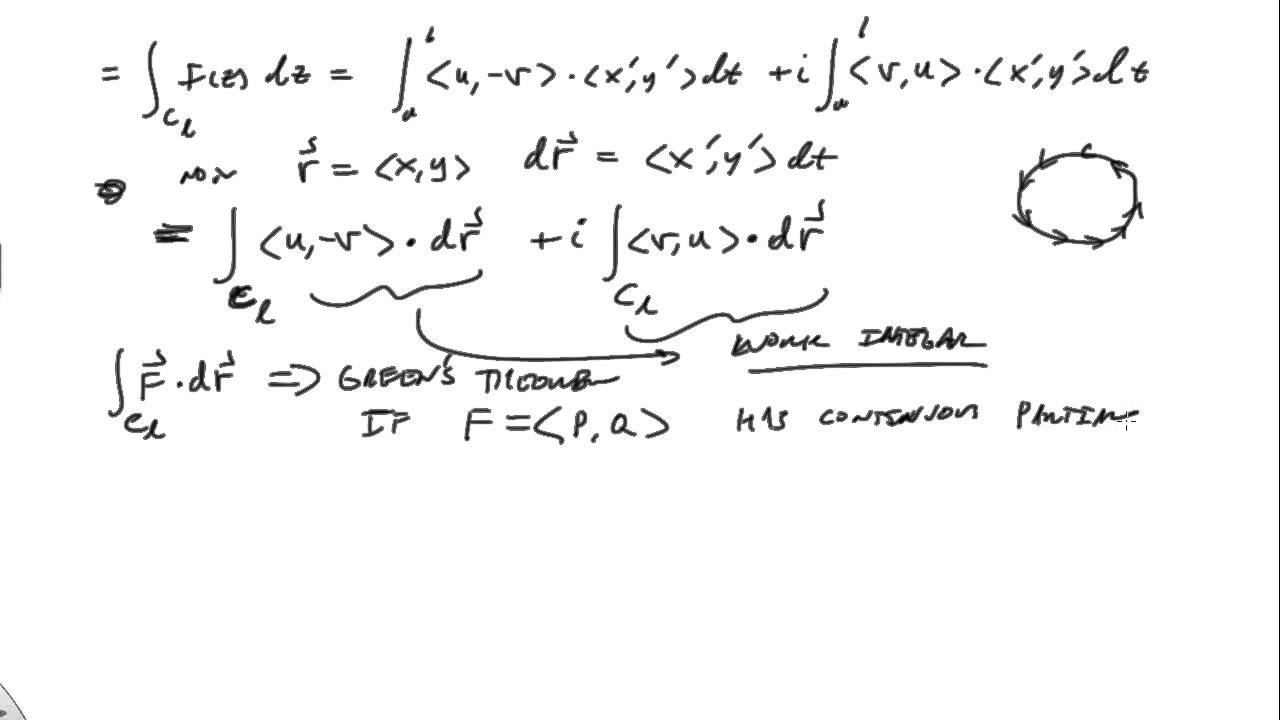 = ∫_{C_1} F(z) dz = ∫_a^b <u,-v> · <x',y'> dt + i ∫_a^b <v,u> · <x',y'> dt
NOW r⃗ = <x,y> dr⃗ = <x',y'> dt
= ∫_{C_1} <u,-v> · dr⃗ + i ∫_{C_1} <v,u> · dr⃗
WORK INTEGRAL
∫_{C_1} F⃗ · dr⃗ => GREEN'S THEOREM
IF F = <P,Q> HAS CONTINUOUS